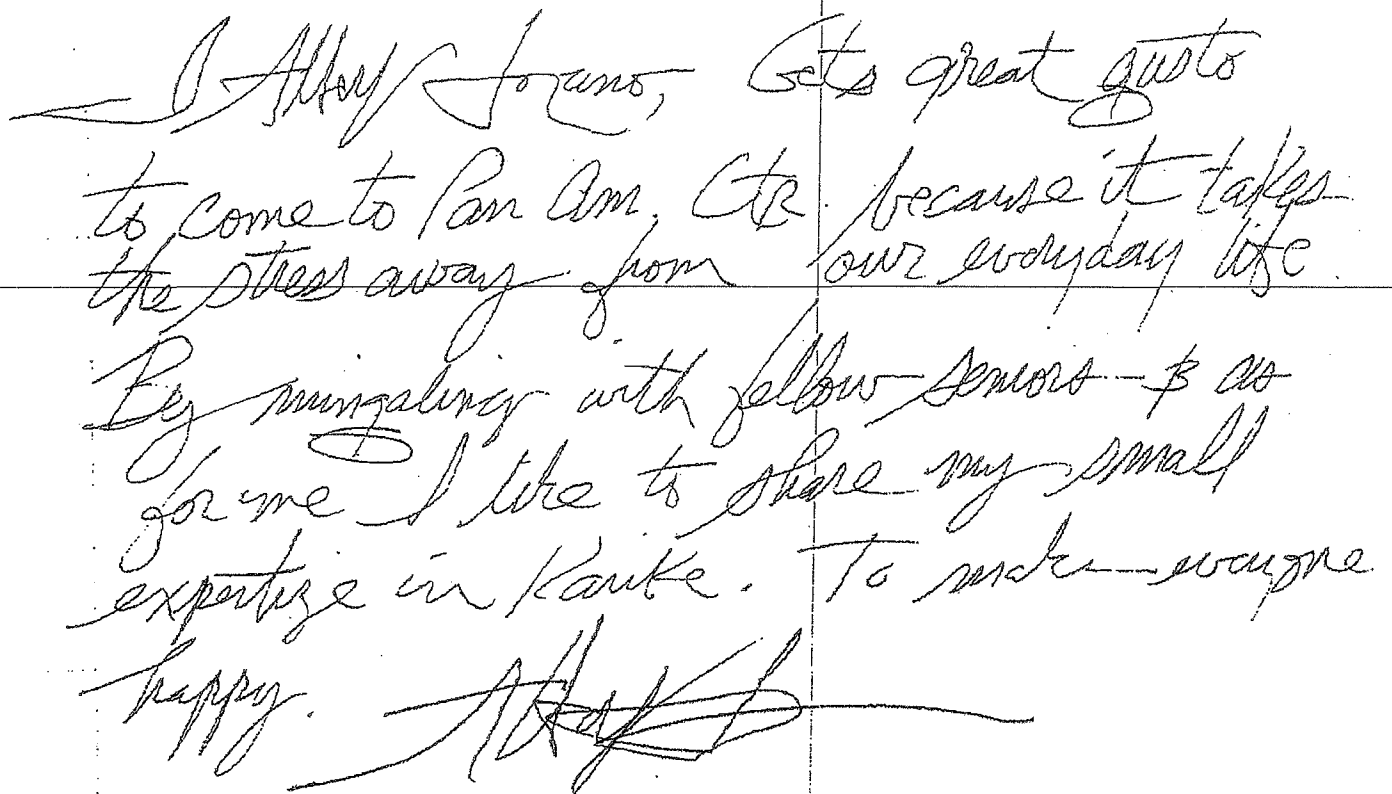 I Lozano, Gets great gusto
to come to Pan Am. Ctr. because it takes
the stress away from our everyday life.
By mingaling with fellow seniors - & as
for me I like to share my small
expertize in Karike. To make everyone
happy.